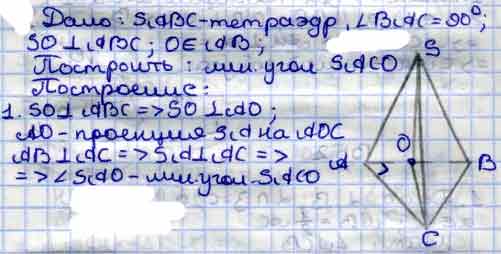 Дано: SABC-тетраэдр, ∠BAC=90°;
SO⊥ABC; O∈AB;
Построить: лин. угол SACO
Построение:
1. SO⊥ABC=>SO⊥AO;
AO-проекция SA на AOC
AB⊥AC=>SA⊥AC=>
=>∠SAO-лин. угол SACO
S
A
O
B
C